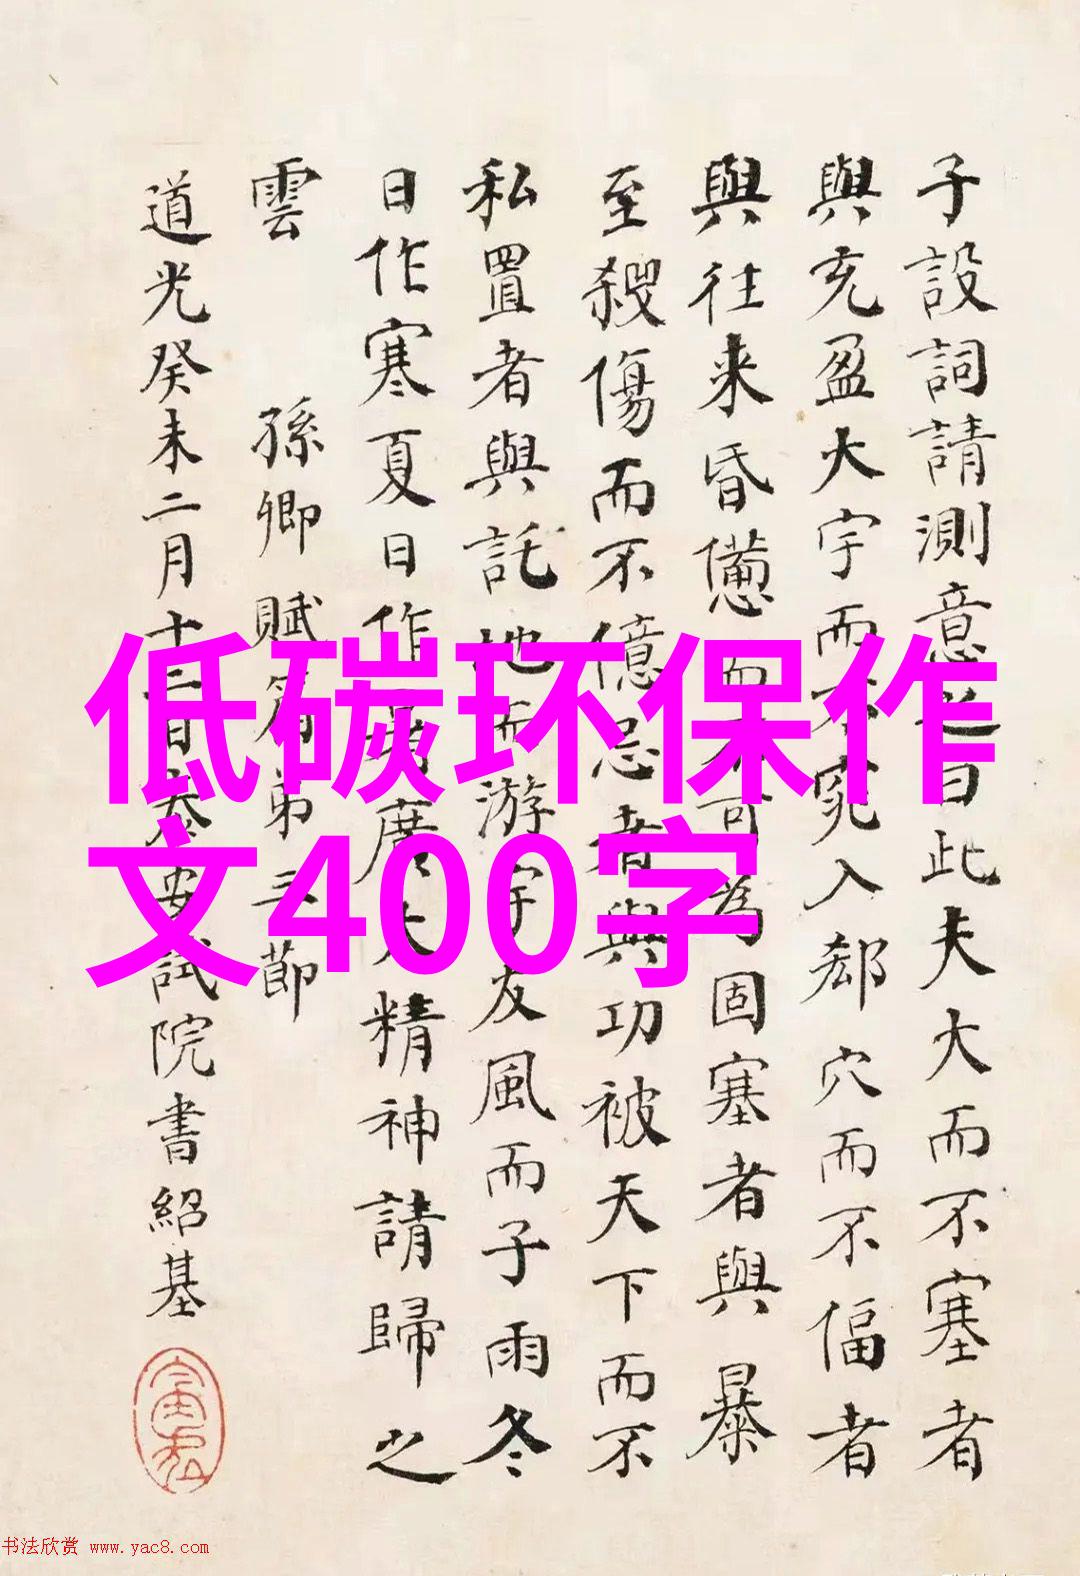 子設詞請測意之曰此夫大而不塞者
與充盈大宇而不窕入郄穴而不偪者
與往来昏憊而不可為固塞者與暴
至殺傷而不億忌者與功被天下而不
私置者與託地而游宇友風而子雨冬
日作寒夏日作暑廣大精神請歸之
雲 孫卿賦篇弟三節
道光癸未二月十二日泰安試院書紹基
低碳环保作
文400字
书法欣赏 www.yac8.com